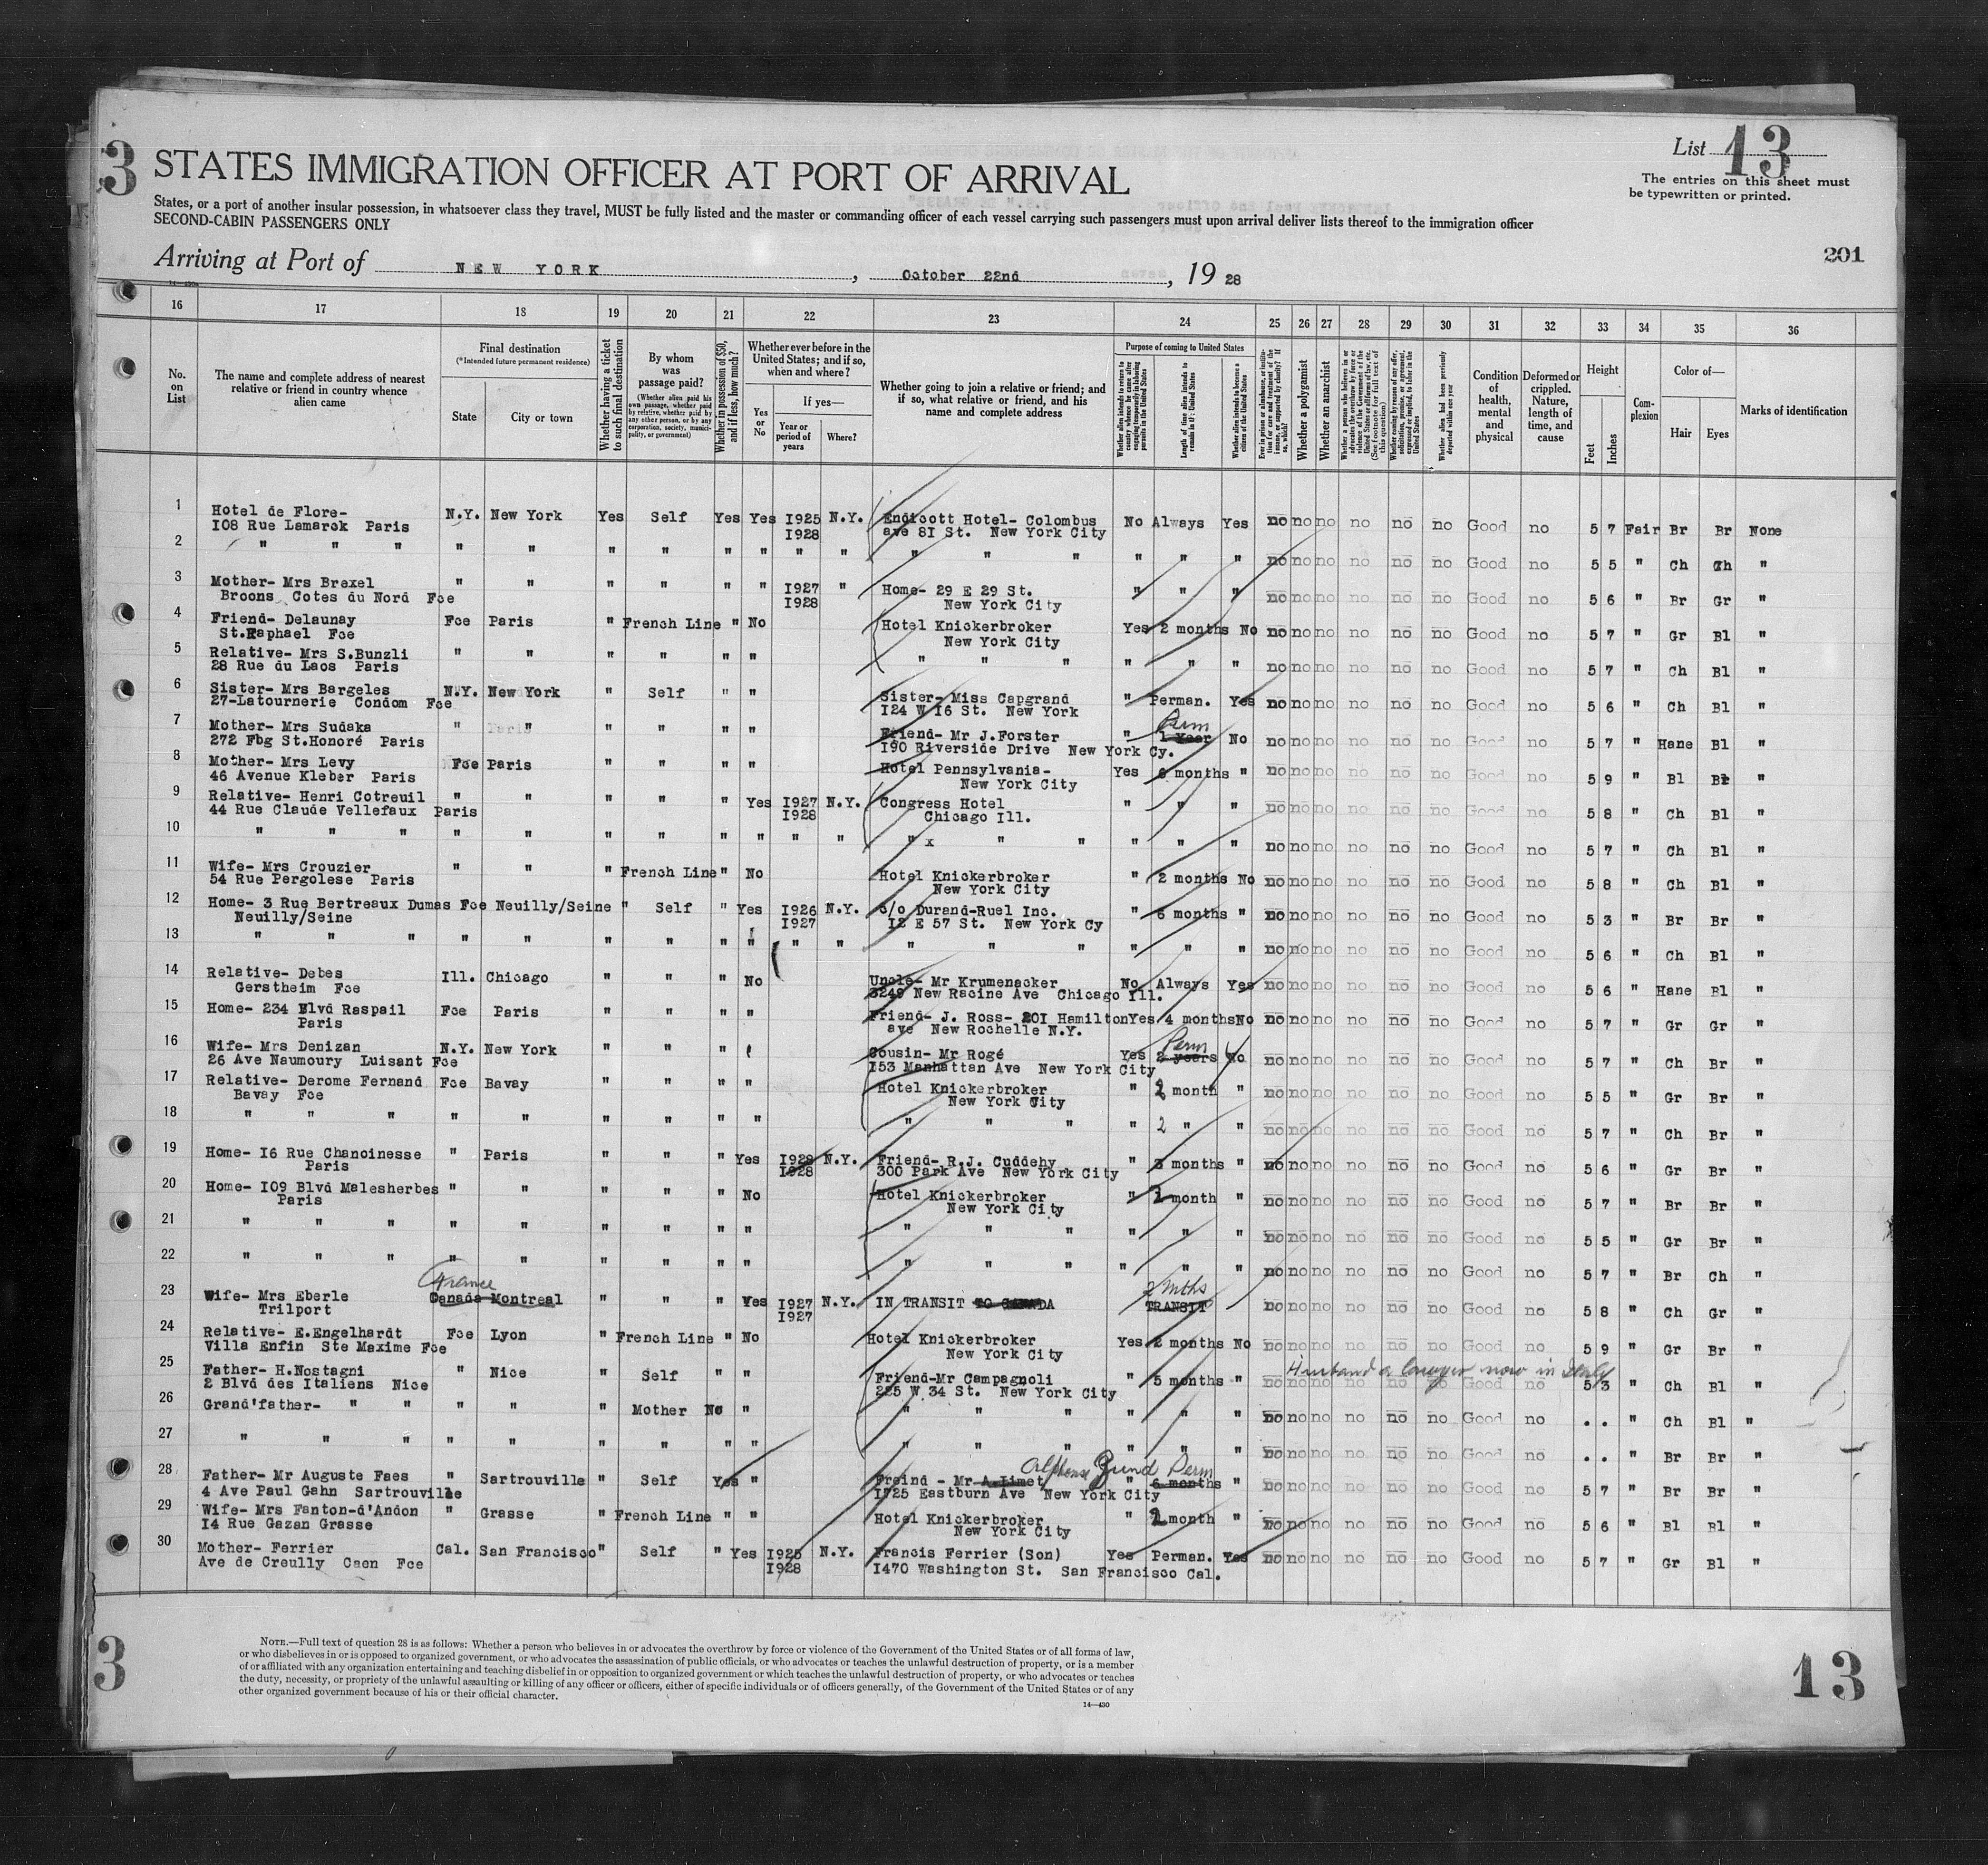 3
STATES IMMIGRATION OFFICER AT PORT OF ARRIVAL
List 13
The entries on this sheet must
be typewritten or printed.
States, or a port of another insular possession, in whatsoever class they travel, MUST be fully listed and the master or commanding officer of each vessel carrying such passengers must upon arrival deliver lists thereof to the immigration officer
SECOND-CABIN PASSENGERS ONLY
201
Arriving at Port of NEW YORK, October 22nd, 1928
16 17 18 19 20 21 22 23 24 25 26 27 28 29 30 31 32 33 34 35 36
No. on List
The name and complete address of nearest relative or friend in country whence alien came
Final destination
(*Intended future permanent residence)
State
City or town
Whether having a ticket to such final destination
By whom was passage paid?
(Whether alien paid his own passage, whether paid by relative, whether paid by any other person, or by any corporation, society, municipality, or government)
Whether in possession of $50, and if less, how much?
Whether ever before in the United States; and if so, when and where?
Yes or No
If yes—
Year or period of years
Where?
Whether going to join a relative or friend; and if so, what relative or friend, and his name and complete address
Purpose of coming to United States
Whether alien intends to return to country whence he came after engaging temporarily in laboring pursuits in the United States
Length of time alien intends to remain in the United States
Whether alien intends to become a citizen of the United States
Whether a polygamist
Whether an anarchist
Whether alien had been previously deported within one year
Condition of health, mental and physical
Deformed or crippled. Nature, length of time, and cause
Height
Feet
Inches
Complexion
Color of—
Hair
Eyes
Marks of identification
1 Hotel de Flore- N.Y. New York Yes Self Yes Yes I925 N.Y. Endicott Hotel- Colombus No Always Yes no no no no no no Good no 5 7 Fair Br Br None
I08 Rue Lamarck Paris I928 ave 8I St. New York City
2 " " " " " " " " " " " " " " " " " no no no no no no Good no 5 5 " Ch Ch "
3 Mother- Mrs Brexel " " " " " " I927 " Home- 29 E 29 St. " " " no no no no no no Good no 5 6 " Br Gr "
Broons Cotes du Nord Fce I928 New York City
4 Friend- Delaunay Fce Paris " French Line " No Hotel Knickerbroker Yes 2 months No no no no no no no Good no 5 7 " Gr Bl "
St.Raphael Fce New York City
5 Relative- Mrs S.Bunzli " " " " " " " " " " " " no no no no no no Good no 5 7 " Ch Bl "
28 Rue du Laos Paris
6 Sister- Mrs Bargeles N.Y. New York " Self " " Sister- Miss Capgrand " Perman. Yes no no no no no no Good no 5 6 " Ch Bl "
27-Latournerie Condom Fce I24 W I6 St. New York
7 Mother- Mrs Sudaka " " " " " " Friend- Mr J.Forster " 1 Year Perm No no no no no no no Good no 5 7 " Hane Bl "
272 Fbg St.Honoré Paris I90 Riverside Drive New York Cy.
8 Mother- Mrs Levy Fce Paris " " " " Hotel Pennsylvania- Yes 6 months " no no no no no no Good no 5 9 " Bl Br "
46 Avenue Kleber Paris New York City
9 Relative- Henri Cotreuil " " " " " Yes I927 N.Y. Congress Hotel " " " no no no no no no Good no 5 8 " Ch Bl "
44 Rue Claude Vellefaux Paris I928 Chicago Ill.
10 " " " " " " " " " " " " x " " " " " no no no no no no Good no 5 7 " Ch Bl "
11 Wife- Mrs Crouzier " " " French Line " No Hotel Knickerbroker " 2 months No no no no no no no Good no 5 8 " Ch Bl "
54 Rue Pergolese Paris New York City
12 Home- 3 Rue Bertreaux Dumas Fce Neuilly/Seine " Self " Yes I926 N.Y. c/o Durand-Ruel Inc. " 6 months " no no no no no no Good no 5 3 " Br Br "
Neuilly/Seine I927 I2 E 57 St. New York Cy
13 " " " " " " " " " " " " " " " " " no no no no no no Good no 5 6 " Ch Bl "
14 Relative- Debes Ill. Chicago " " " No Uncle- Mr Krumenacker No Always Yes no no no no no no Good no 5 6 " Hane Bl "
Gerstheim Fce 3249 New Racine Ave Chicago Ill.
15 Home- 234 Blvd Raspail Fce Paris " " " " Friend- J. Ross- 20I Hamilton Yes 4 months No no no no no no no Good no 5 7 " Gr Gr "
Paris ave New Rochelle N.Y.
16 Wife- Mrs Denizan N.Y. New York " " " " Cousin- Mr Rogé Yes 2 years Perm No no no no no no no Good no 5 7 " Ch Br "
26 Ave Naumoury Luisant Fce I53 Manhattan Ave New York City
17 Relative- Derome Fernand Fce Bavay " " " " Hotel Knickerbroker " 2 month " no no no no no no Good no 5 5 " Gr Br "
Bavay Fce New York City
18 " " " " " " " " " " " " " 2 " " no no no no no no Good no 5 7 " Ch Br "
19 Home- I6 Rue Chanoinesse " Paris " " " Yes I928 N.Y. Friend- R.J. Cuddehy " 3 months " no no no no no no Good no 5 6 " Gr Br "
Paris I928 300 Park Ave New York City
20 Home- I09 Blvd Malesherbes " " " " " No Hotel Knickerbroker " 2 month " no no no no no no Good no 5 7 " Br Br "
Paris New York City
21 " " " " " " " " " " " " " " " no no no no no no Good no 5 5 " Gr Br "
22 " " " " " " " " " " " " " " " no no no no no no Good no 5 7 " Br Ch "
France 2 mths
23 Wife- Mrs Eberle Canada Montreal " " " Yes I927 N.Y. IN TRANSIT TO CANADA TRANSIT no no no no no no Good no 5 8 " Ch Gr "
Trilport I927
24 Relative- E.Engelhardt Fce Lyon " French Line " No Hotel Knickerbroker Yes 2 months No no no no no no no Good no 5 9 " Gr Br "
Villa Enfin Ste Maxime Fce New York City
Husband a lawyer now in Italy
25 Father- H.Nostagni " Nice " Self " " Friend-Mr Campagnoli " 5 months " no no no no no no Good no 5 3 " Ch Bl "
2 Blvd des Italiens Nice 225 W 34 St. New York City
26 Grand'father- " " " " " Mother No " " " " " " " no no no no no no Good no . . " Ch Bl "
27 " " " " " " " " " " " " " " " no no no no no no Good no . . " Br Br "
Alphonse Perm
28 Father- Mr Auguste Faes " Sartrouville " Self Yes " Freind - Mr A.Limet " 6 months " no no no no no no Good no 5 7 " Br Br "
4 Ave Paul Gahn Sartrouville I725 Eastburn Ave New York City
29 Wife- Mrs Fanton-d'Andon " Grasse " French Line " " Hotel Knickerbroker " 2 month " no no no no no no Good no 5 6 " Bl Bl "
I4 Rue Gazan Grasse New York City
30 Mother- Ferrier Cal. San Francisco " Self " Yes I925 N.Y. Francis Ferrier (Son) Yes Perman. Yes no no no no no no Good no 5 7 " Gr Bl "
Ave de Creully Caen Fce I928 I470 Washington St. San Francisco Cal.
3
NOTE.—Full text of question 28 is as follows: Whether a person who believes in or advocates the overthrow by force or violence of the Government of the United States or of all forms of law,
or who disbelieves in or is opposed to organized government, or who advocates the assassination of public officials, or who advocates or teaches the unlawful destruction of property, or is a member
of or affiliated with any organization entertaining and teaching disbelief in or opposition to organized government or which teaches the unlawful destruction of property, or who advocates or teaches
the duty, necessity, or propriety of the unlawful assaulting or killing of any officer or officers, either of specific individuals or of officers generally, of the Government of the United States or of any
other organized government because of his or their official character.
14—430
13